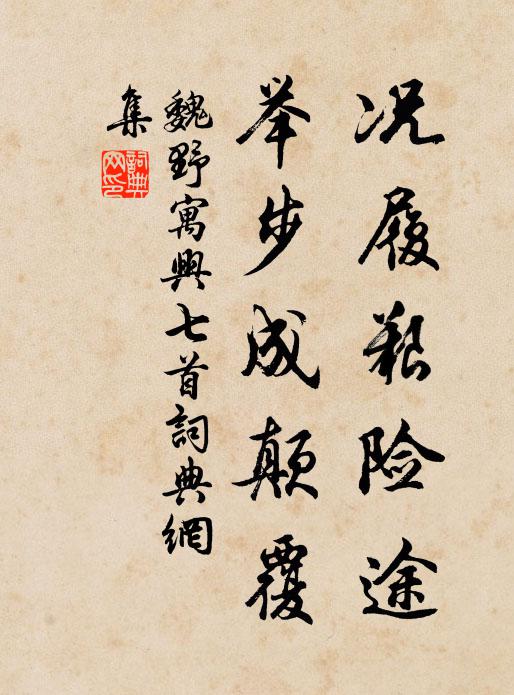 况履艰险途
举步成颠覆
魏野寓興七首詞典網
集
詞典網印